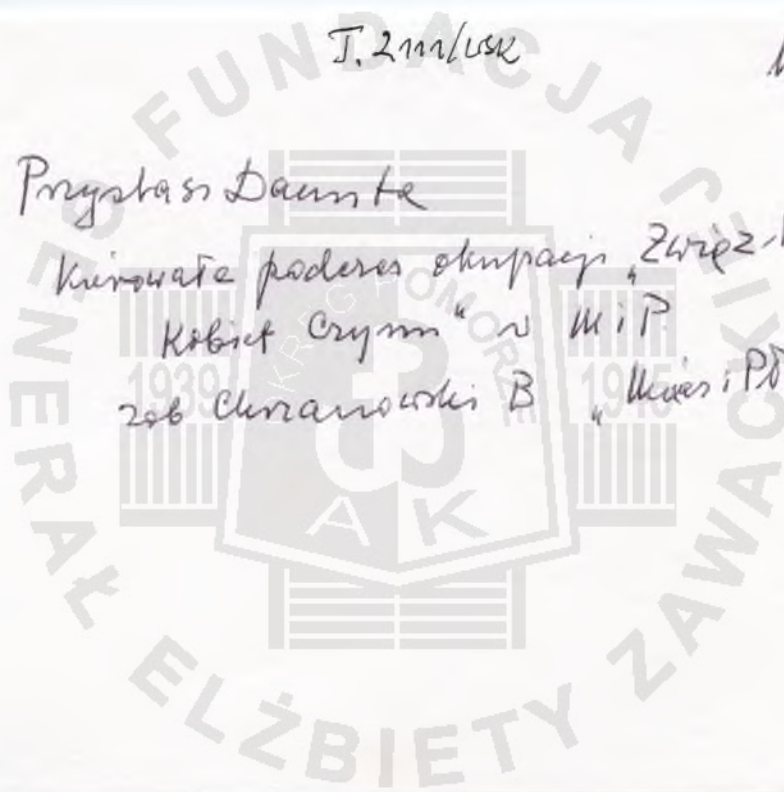 T. 2111/WSK
Przystasz Danuta
Kierowała podczas okupacji „Związ
Kobiet Czynu" w MiP.
zob Chrzanowski B „Miecz i Pł
FUNDACJA GENERAŁ ELŻBIETY ZAWACKIEJ
OKRĘG POMORZE
1939 1945
AK